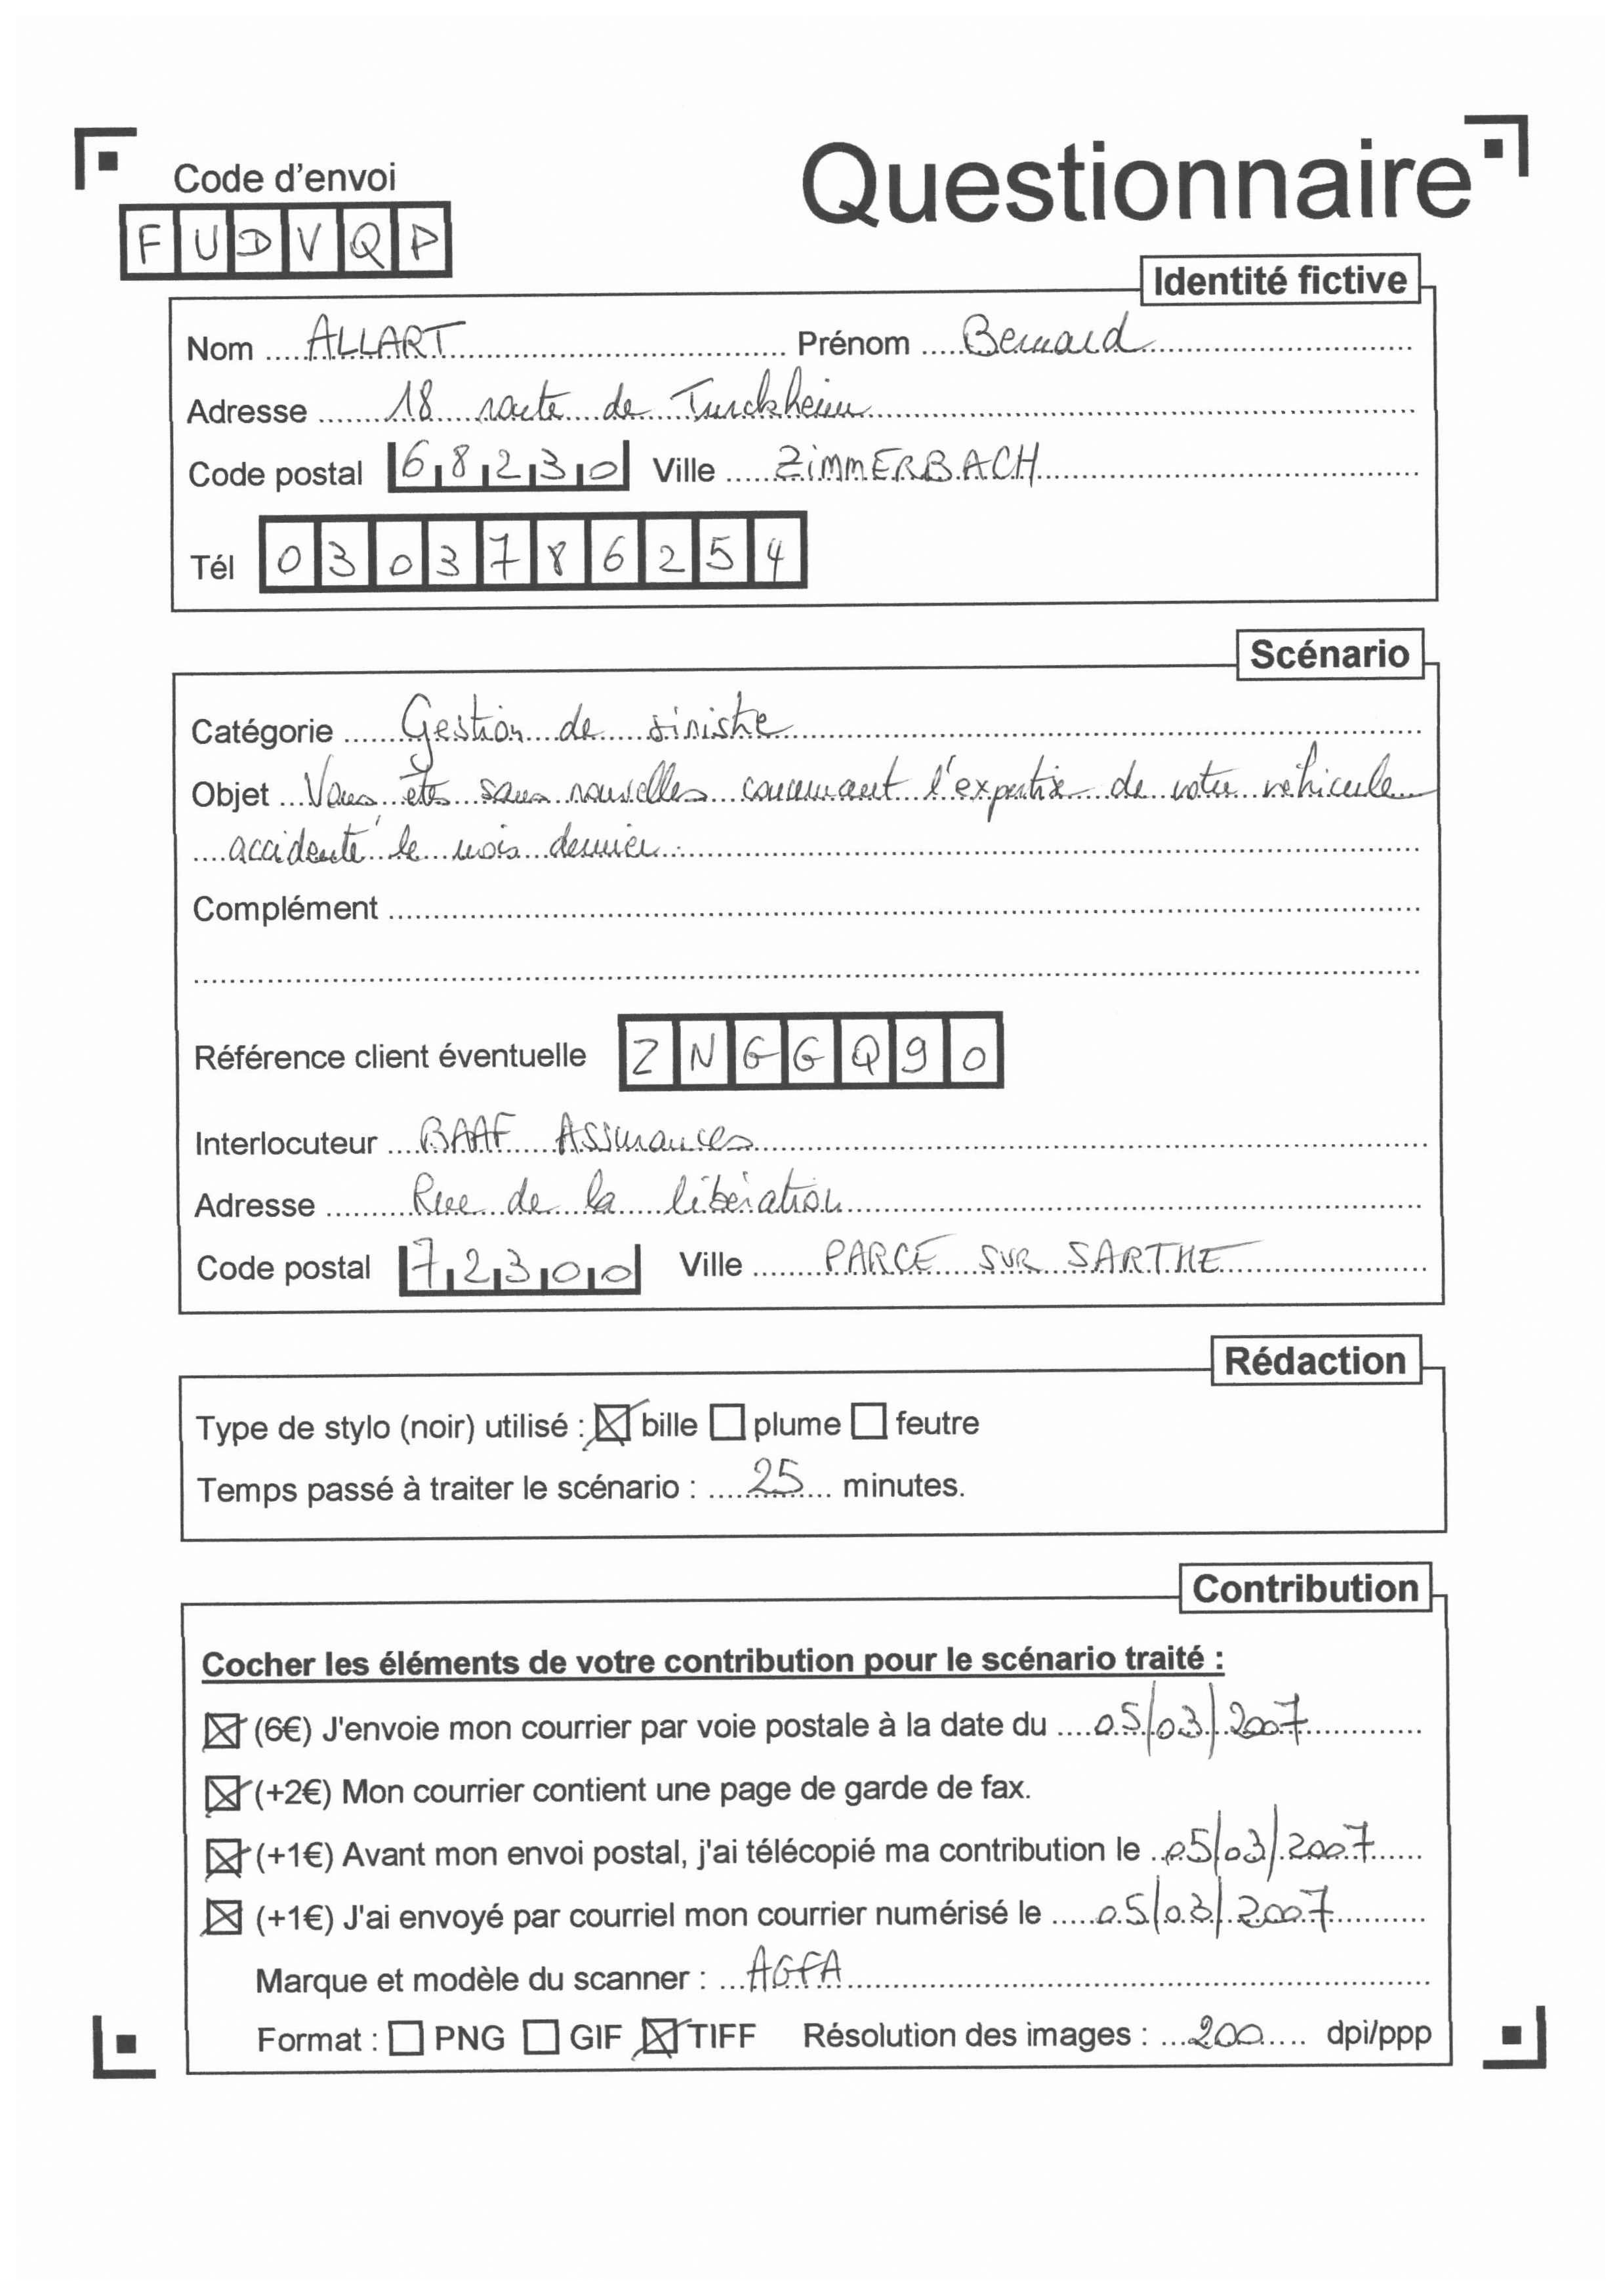 Code d'envoi
Questionnaire
FUDVQP
Identité fictive
Nom ALLART Prénom Bernard
Adresse 18 route de Turckheim
Code postal 68230 Ville ZIMMERBACH
Tél 0303786254
Scénario
Catégorie Gestion de sinistre
Objet Vous êtes sans nouvelles concernant l'expertise de votre véhicule
accidenté le mois dernier.
Complément
Référence client éventuelle ZNGGQ90
Interlocuteur BAAF Assurances
Adresse Rue de la libération
Code postal 72300 Ville PARCE SUR SARTHE
Rédaction
Type de stylo (noir) utilisé : ☒ bille ☐ plume ☐ feutre
Temps passé à traiter le scénario : 25 minutes.
Contribution
Cocher les éléments de votre contribution pour le scénario traité :
☒ (6€) J'envoie mon courrier par voie postale à la date du 05/03/2007
☒ (+2€) Mon courrier contient une page de garde de fax.
☒ (+1€) Avant mon envoi postal, j'ai télécopié ma contribution le 05/03/2007
☒ (+1€) J'ai envoyé par courriel mon courrier numérisé le 05/03/2007
Marque et modèle du scanner : AGFA
Format : ☐ PNG ☐ GIF ☒ TIFF Résolution des images : 200 dpi/ppp